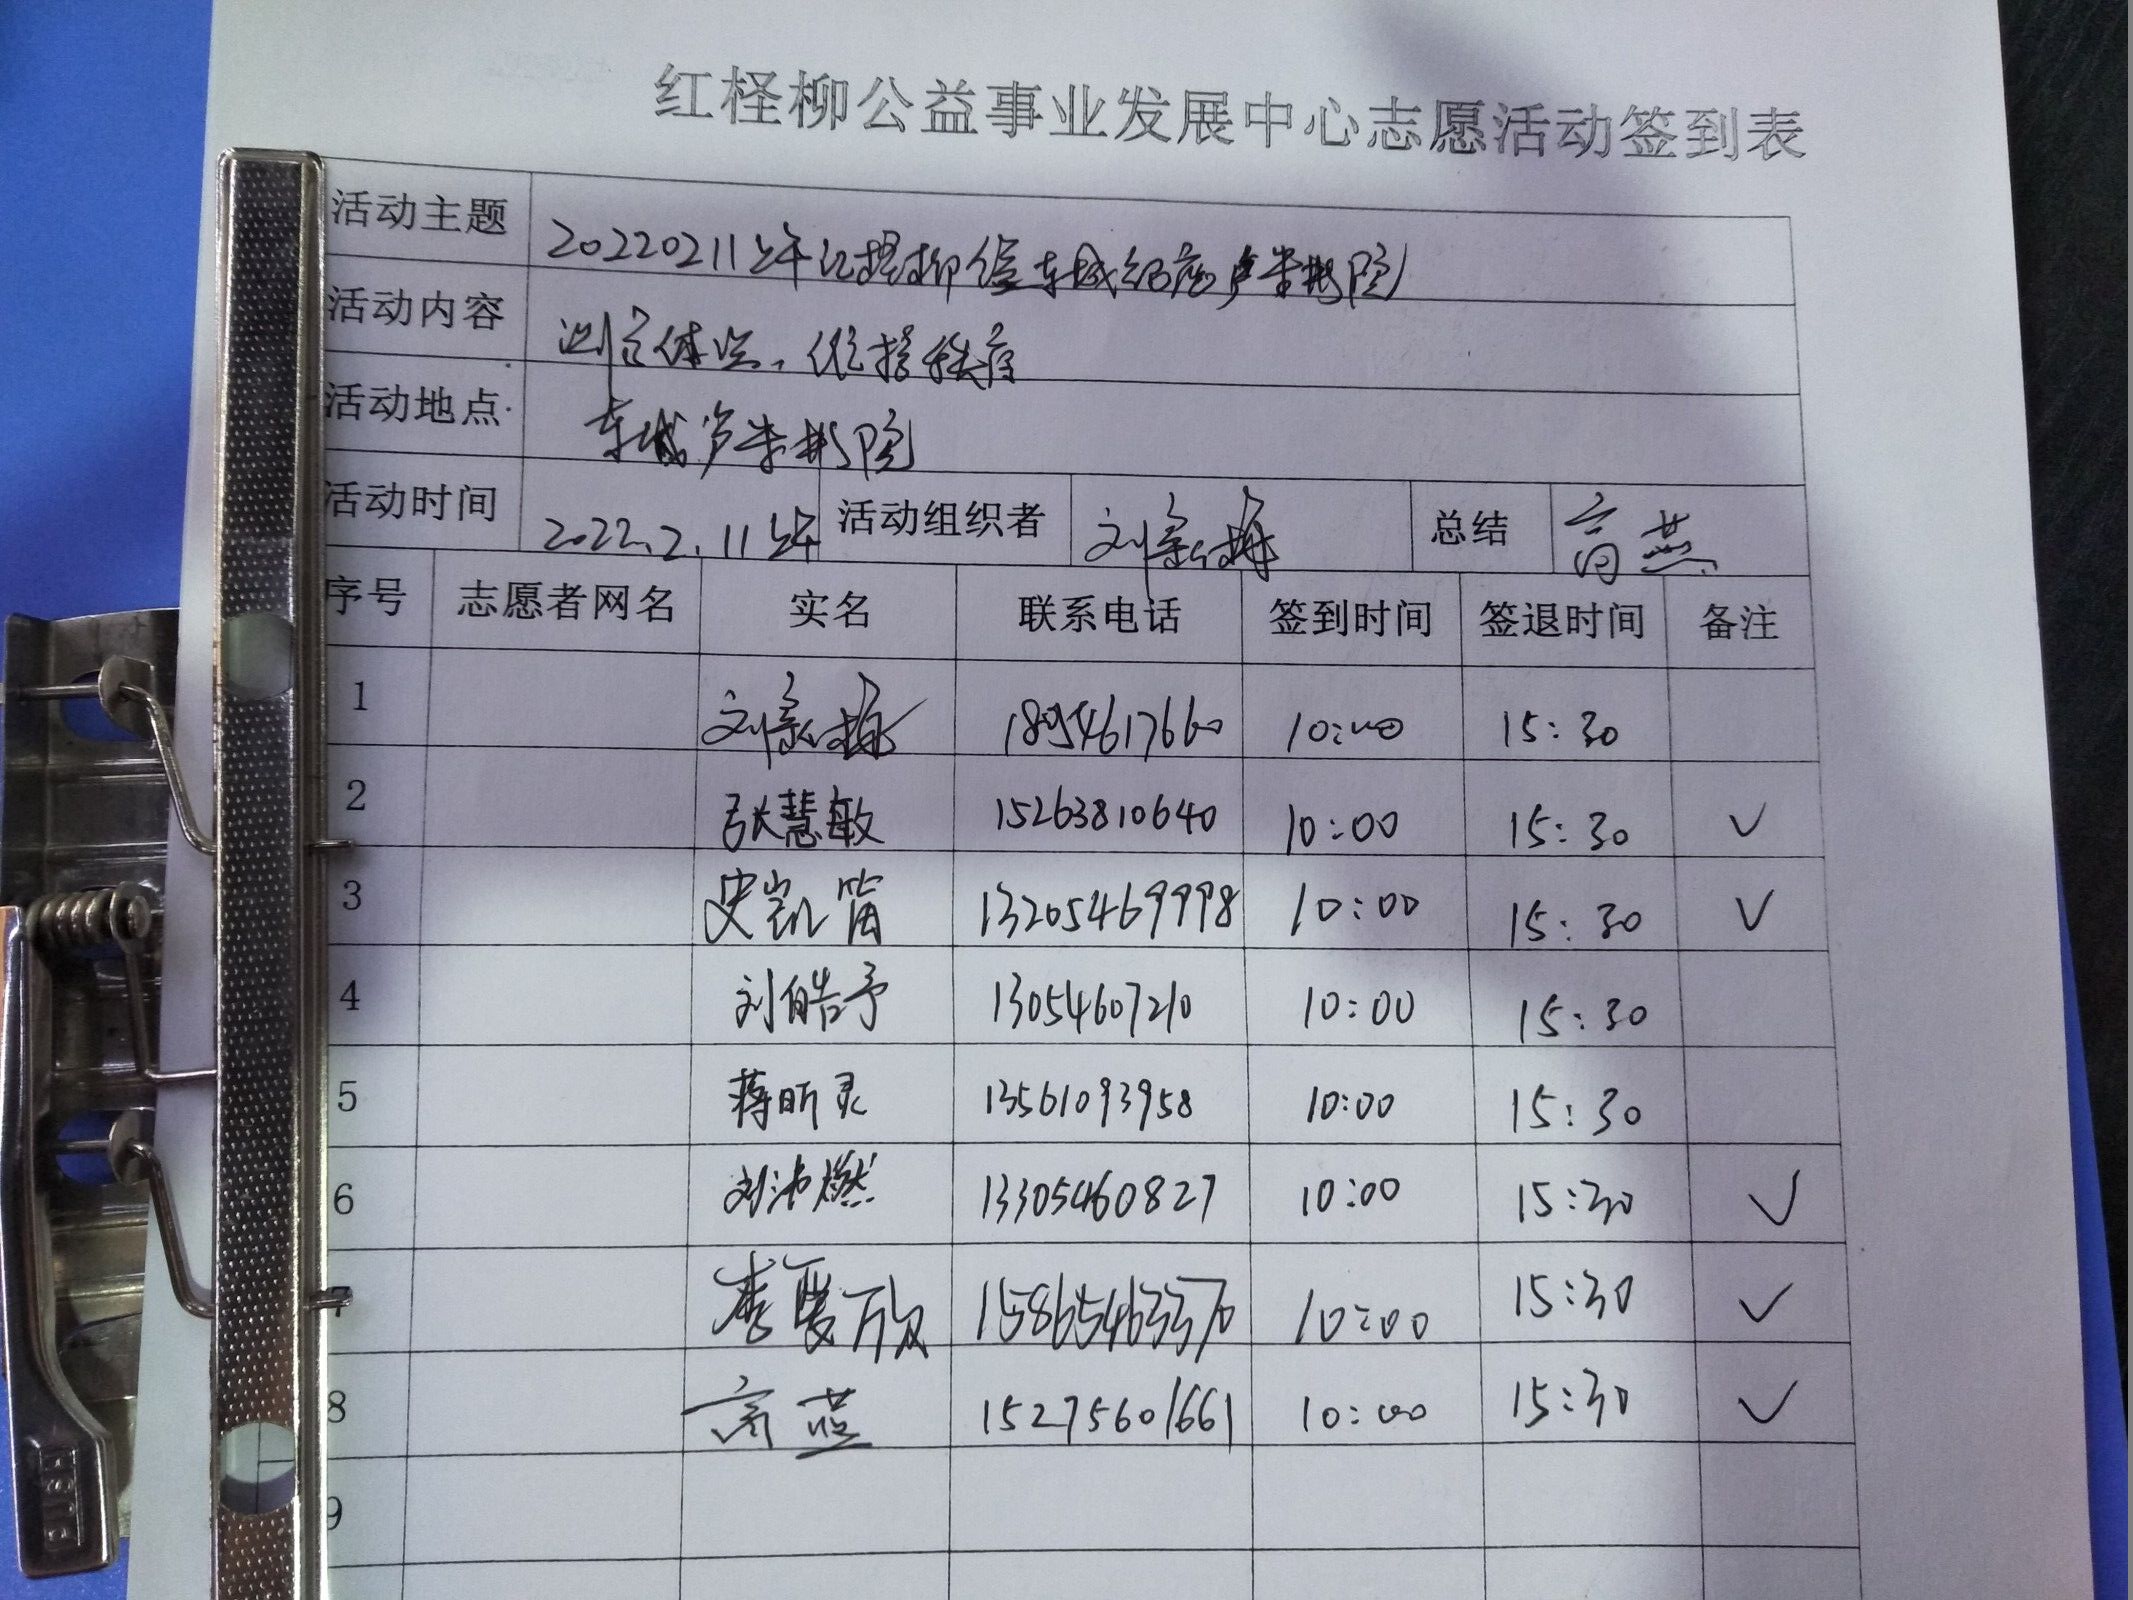 红柽柳公益事业发展中心志愿活动签到表
活动主题 20220211上午红柽柳值东城
活动内容 测量体温、维持秩序
活动地点 东城 影院
活动时间 2022.2.11上午 活动组织者 刘 梅 总结 高燕
序号 志愿者网名 实名 联系电话 签到时间 签退时间 备注
1 刘 梅 18954617660 10:00 15:30
2 张慧敏 15263810640 10:00 15:30 ✓
3 史凯笛 13205469998 10:00 15:30 ✓
4 刘皓予 13054607210 10:00 15:30
5 蒋昕灵 13561093958 10:00 15:30
6 刘沛燃 13305460827 10:00 15:30 ✓
7 李 15865463370 10:00 15:30 ✓
8 高燕 15275601661 10:00 15:30 ✓
9
PUSH